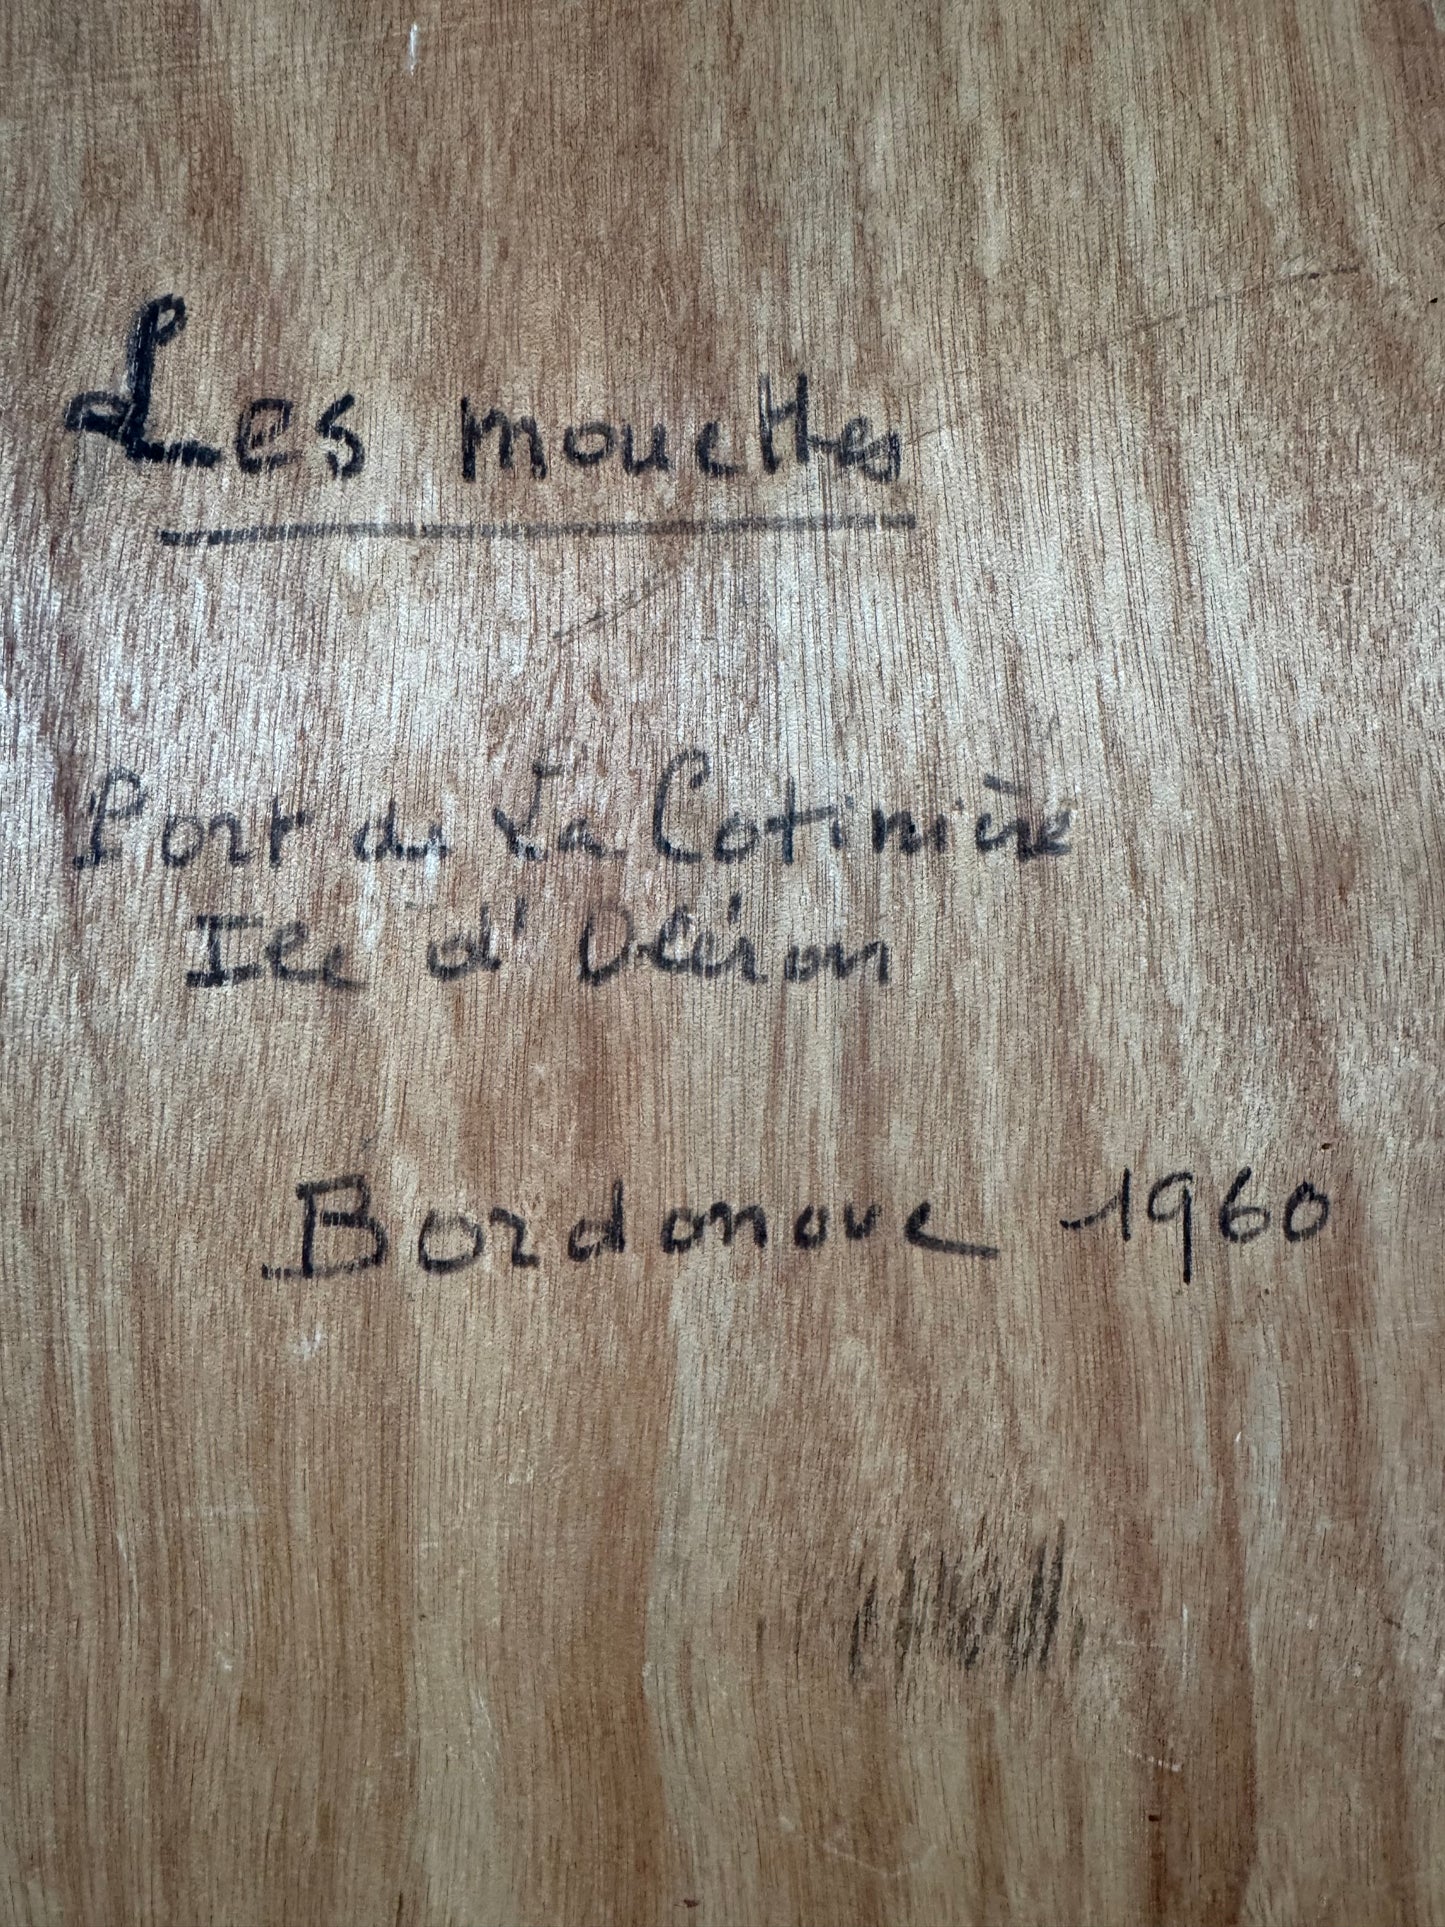 Les mouettes
Port de La Cotinière
Ile d'Oléron
Bordonove 1960